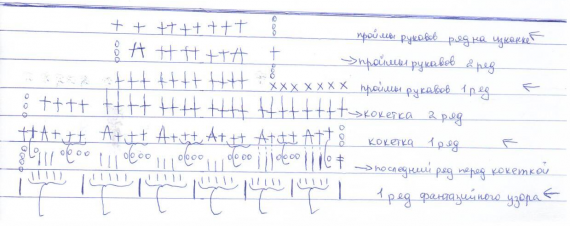 проймы рукавов ряд на изнанке
проймы рукавов 2 ряд
проймы рукавов 1 ряд
кокетка 2 ряд
кокетка 1 ряд
последний ряд перед кокеткой
1 ряд фантазийного узора